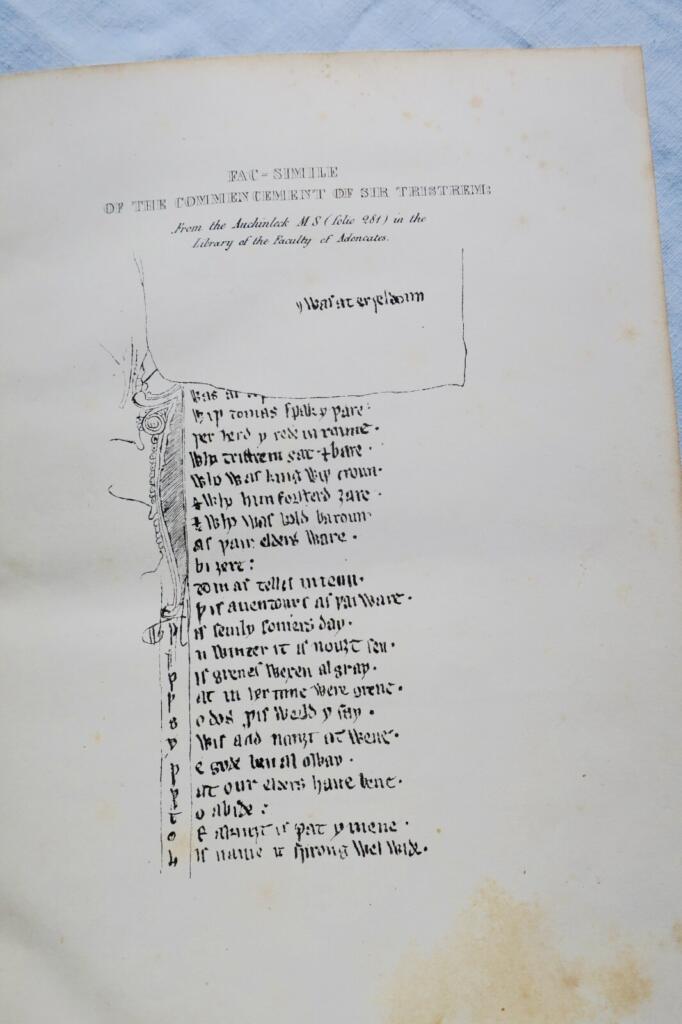 FAC-SIMILE
OF THE COMMENCEMENT OF SIR TRISTREM:
From the Auchinleck MS (folio 281) in the
Library of the Faculty of Advocates.
y was at erþeldoun
was at
wiþ tomas spak y þare
þer herd y rede in roune
who tristrem gat & bare
who was king wiþ croun
& who him fosterd ȝare
& who was bold baroun
as þair elders ware
bi ȝere
tomas telles in toun
þis auentours as þai ware
þ is semly somers day
i n winter it is nouȝt sen
þ is greues wexen al gray
þ at in her time were grene
s o dos þis werld y say
y wis and nouȝt at wene
þ e gode ben al oway
þ at our elders haue bene
t o abide
o f a kniȝt is þat y mene
h is name it sprong wel wide